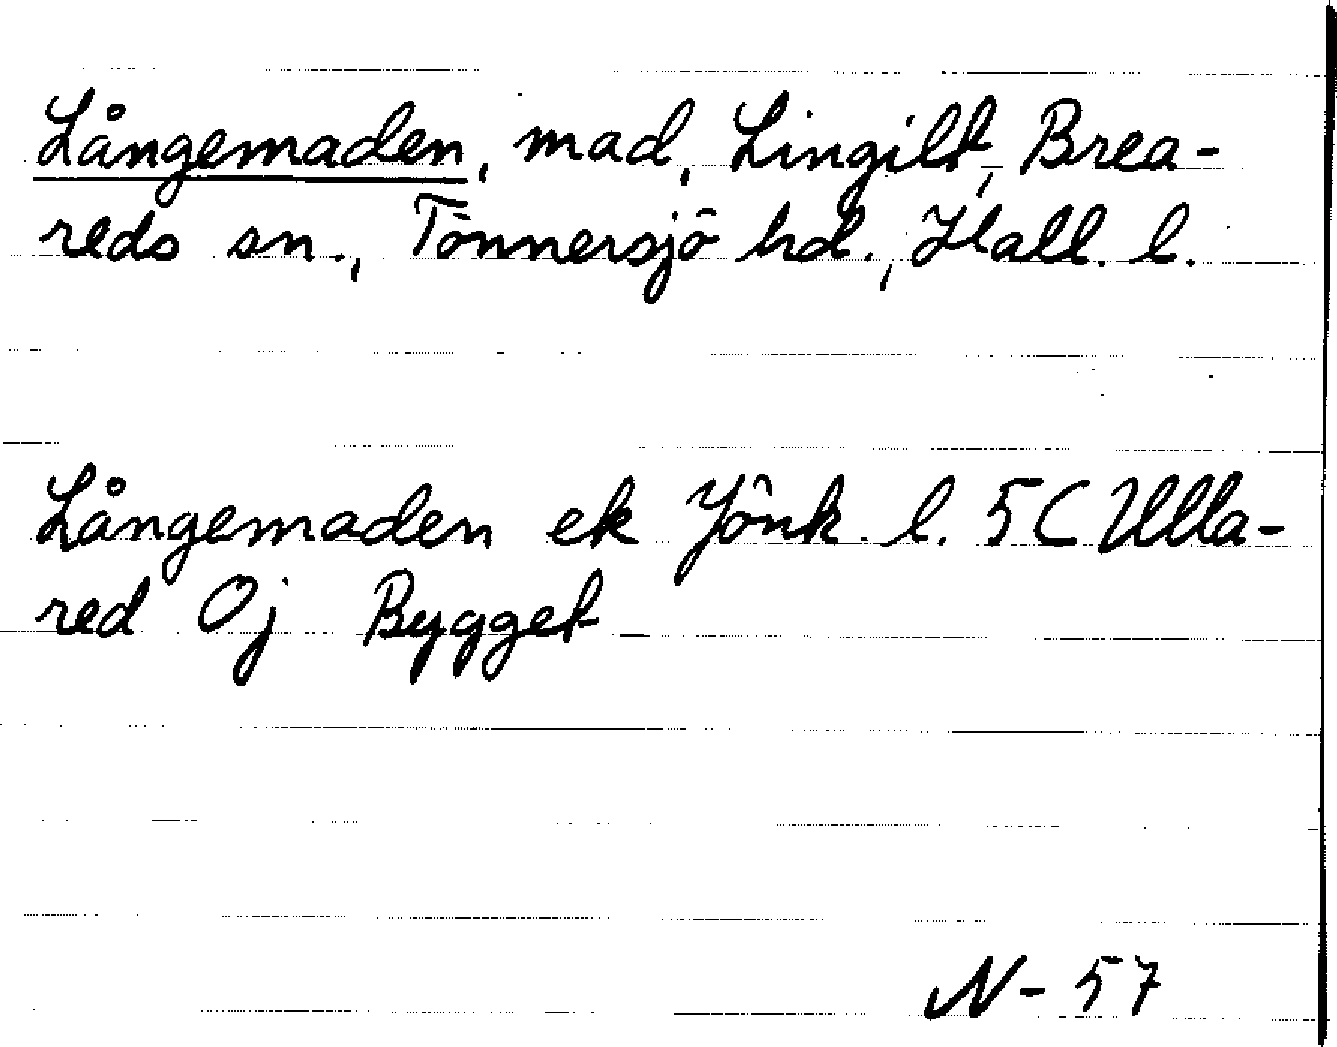 Långemaden, mad, Lingilt, Brea-
reds sn., Tönnersjö hd., Hall. l.
Långemaden ek Jönk. l. 5C Ulla-
red Oj Bygget
N-57